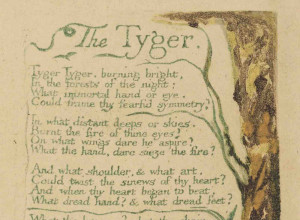 The Tyger.
Tyger Tyger, burning bright,
In the forests of the night;
What immortal hand or eye,
Could frame thy fearful symmetry?
In what distant deeps or skies,
Burnt the fire of thine eyes?
On what wings dare he aspire?
What the hand, dare sieze the fire?
And what shoulder, & what art,
Could twist the sinews of thy heart?
And when thy heart began to beat,
What dread hand? & what dread feet?